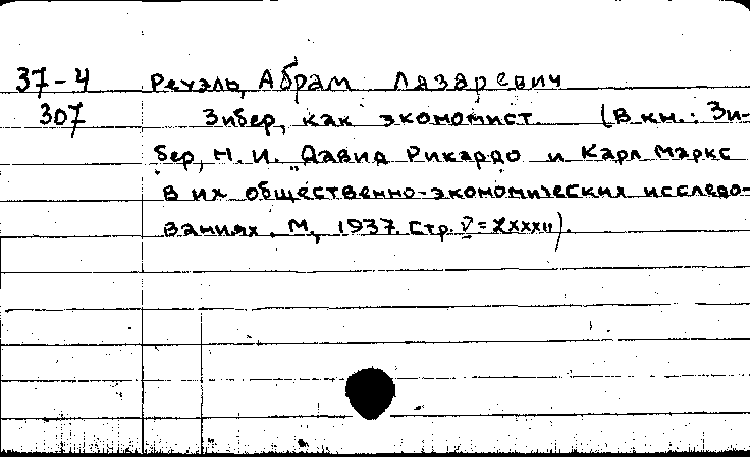 37-4 Реуэль, Абрам Лазаревич
307 Зибер, как экономист. (В кн.: Зи-
бер, Н. И. „Давид Рикардо и Карл Маркс
в их общественно-экономических исследо-
ваниях. М., 1937. Стр. V=XXXXII).